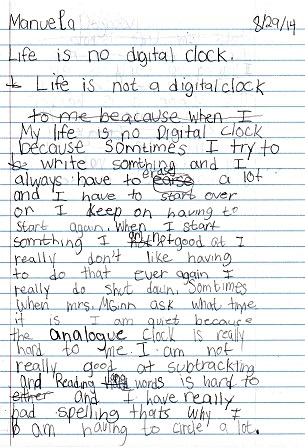 Manuela 8/29/14
Life is no digital clock.
Life is not a digital clock
to me beacause when I
My life is no Digital clock
because Somtimes I try to
write somthing and I
always have to erase a lot
and I have to start over
or I keep on having to
start again. When I start
somthing I am not good at I
really don't like having
to do that ever again I
really do shut down. Somtimes
when mrs. McGinn ask what time
it is I am quiet because
the analogue clock is really
hard to me. I am not
really good at subtrackting
and Reading words is hard to
either and I have really
bad spelling thats why I
am having to circle a lot.